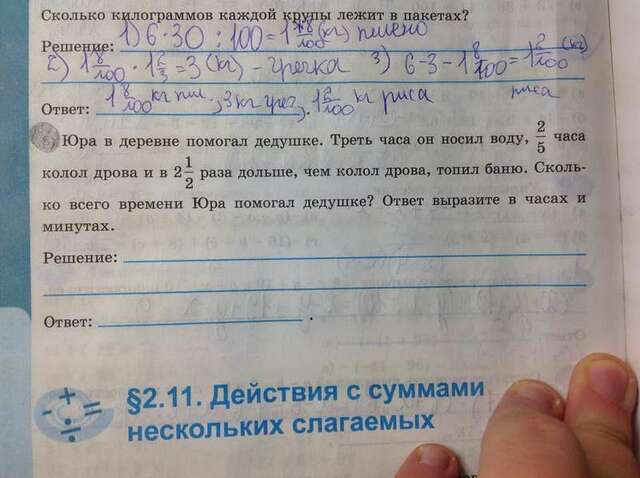 Сколько килограммов каждой крупы лежит в пакетах?
Решение: 1) 6·30 : 100 = 1 8/100 (кг) пшено
2) 1 8/100 · 1 2/3 = 3 (кг) – гречка 3) 6–3–1 8/100 = 1 2/100 (кг)
риса
Ответ: 1 8/100 кг пш., 3 кг греч., 1 2/100 кг риса
Юра в деревне помогал дедушке. Треть часа он носил воду, 2/5 часа
колол дрова и в 2 1/2 раза дольше, чем колол дрова, топил баню. Сколь-
ко всего времени Юра помогал дедушке? Ответ выразите в часах и
минутах.
Решение:
Ответ: .
§2.11. Действия с суммами
нескольких слагаемых